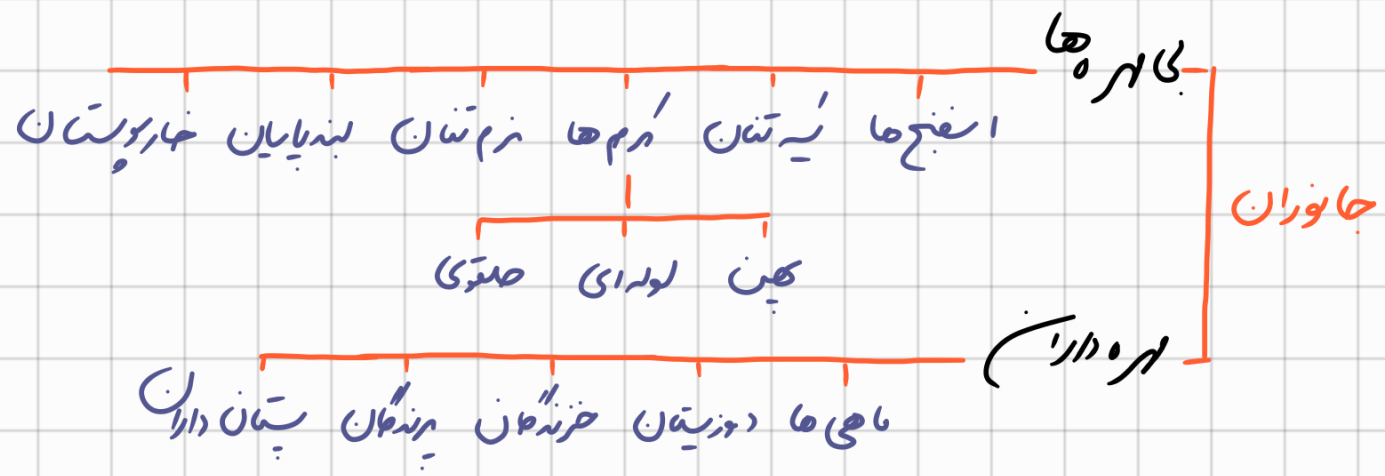 بی مهره ها
اسفنج ها کیسه تنان کرم ها نرم تنان بندپایان خارپوستان
جانوران
پهن لوله ای حلقوی
مهره داران
ماهی ها دوزیستان خزندگان پرندگان پستان داران